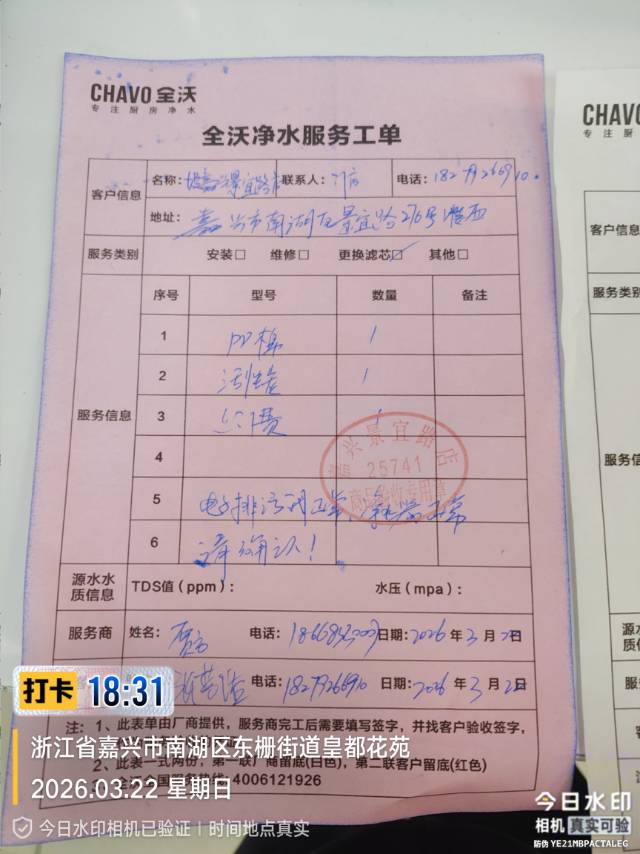 CHAVO 全沃
专注厨房净水
全沃净水服务工单
客户信息
名称: 嘉兴景宜路店 联系人: 门店 电话: 18279266910
地址: 嘉兴市南湖区景宜路276号
服务类别 安装□ 维修□ 更换滤芯☑ 其他□
服务信息
序号 型号 数量 备注
1 PP棉 1
2 活性炭 1
3 上门费 1
4
5 电子排污阀正常,
6 请确认!
嘉兴景宜路店
25741
商品验收专用章
源水水质信息 TDS值(ppm): 水压(mpa):
服务商 姓名: 电话: 日期: 2026年3月22日
电话: 18279266910 日期: 2026年3月22日
注: 1、此表单由厂商提供,服务商完工后需要填写签字,并找客户验收签字,
2、此表一式两份,第一联厂商留底(白色),第二联客户留底(红色)
全沃全国服务热线: 4006121926
打卡 18:31
浙江省嘉兴市南湖区东栅街道皇都花苑
2026.03.22 星期日
今日水印相机已验证 | 时间地点真实
今日水印
相机 真实可验
防伪 YE21MBPACTALEG
CHAVO
专注厨
客户信息
服务类别
服务信
源水
质信
服务